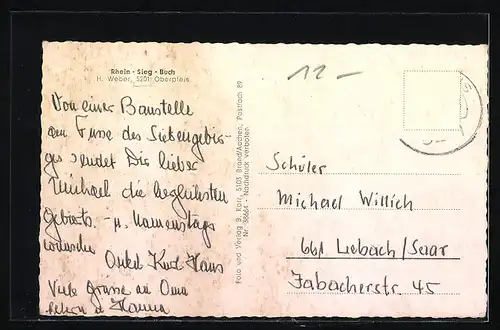 Rhein - Sieg - Buch
H. Weber, 5201 Oberpleis
Von einer Baustelle
am Fusse des Siebengebir-
ges sendet Dir lieber
Michael die herzlichsten
Geburts- u. Namenstags
wünsche
Onkel Karl Hans
Viele Grüsse an Oma
Eltern u. Hanna
Foto und Verlag B. Kort, 5103 Brand/Aachen, Postfach 89
Nr. 3866 - Nachdruck verboten
12,-
Schüler
Michael Willich
661 Lebach/Saar
Jabacherstr. 45